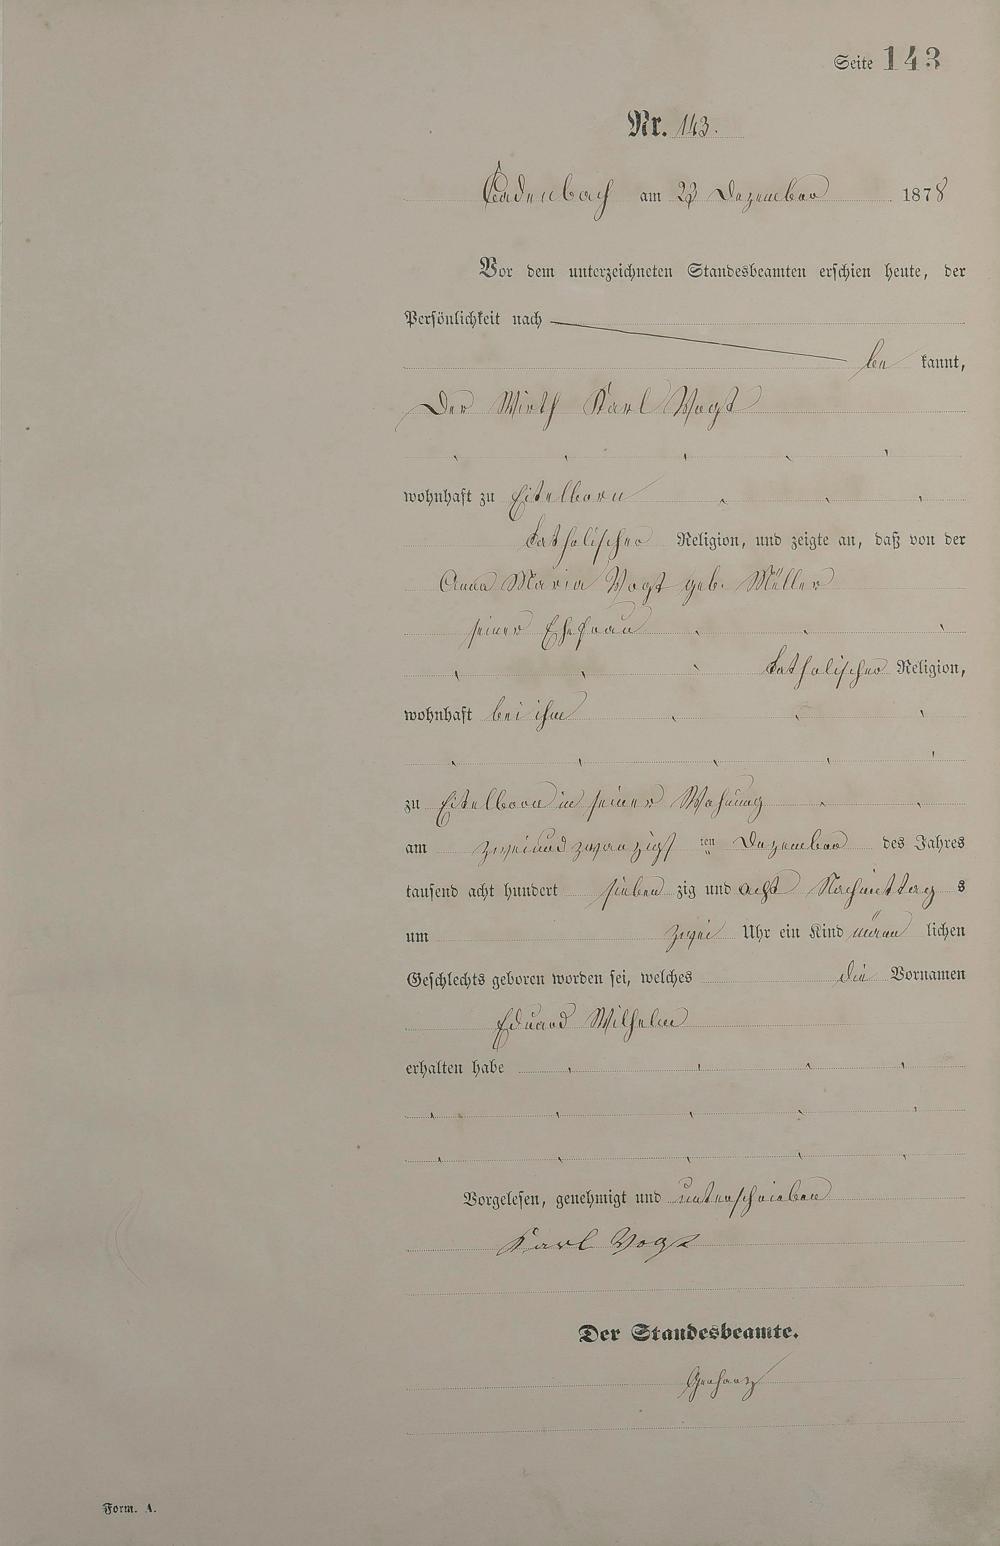 Seite 143
Nr. 143.
Cadenbach am 23 Dezember 1878
Vor dem unterzeichneten Standesbeamten erschien heute, der
Persönlichkeit nach
be kannt,
Der Wirth Karl Vogt
wohnhaft zu Eitelborn
katholischer Religion, und zeigte an, daß von der
Anna Maria Vogt geb. Müller
seiner Ehefrau
katholischer Religion,
wohnhaft bei ihm
zu Eitelborn in seiner Wohnung
am zweiundzwanzigst ten Dezember des Jahres
tausend acht hundert sieben zig und acht Nachmittag s
um zwei Uhr ein Kind männ lichen
Geschlechts geboren worden sei, welches die Vornamen
Eduard Wilhelm
erhalten habe
Vorgelesen, genehmigt und unterschrieben
Karl Vogt
Der Standesbeamte.
Form. A.